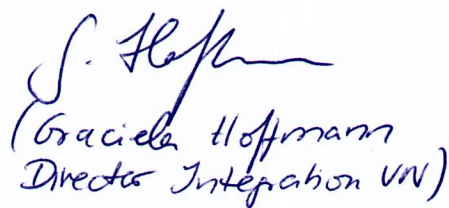 G. Hoffmann
(Graciela Hoffmann
Director Integration VN)